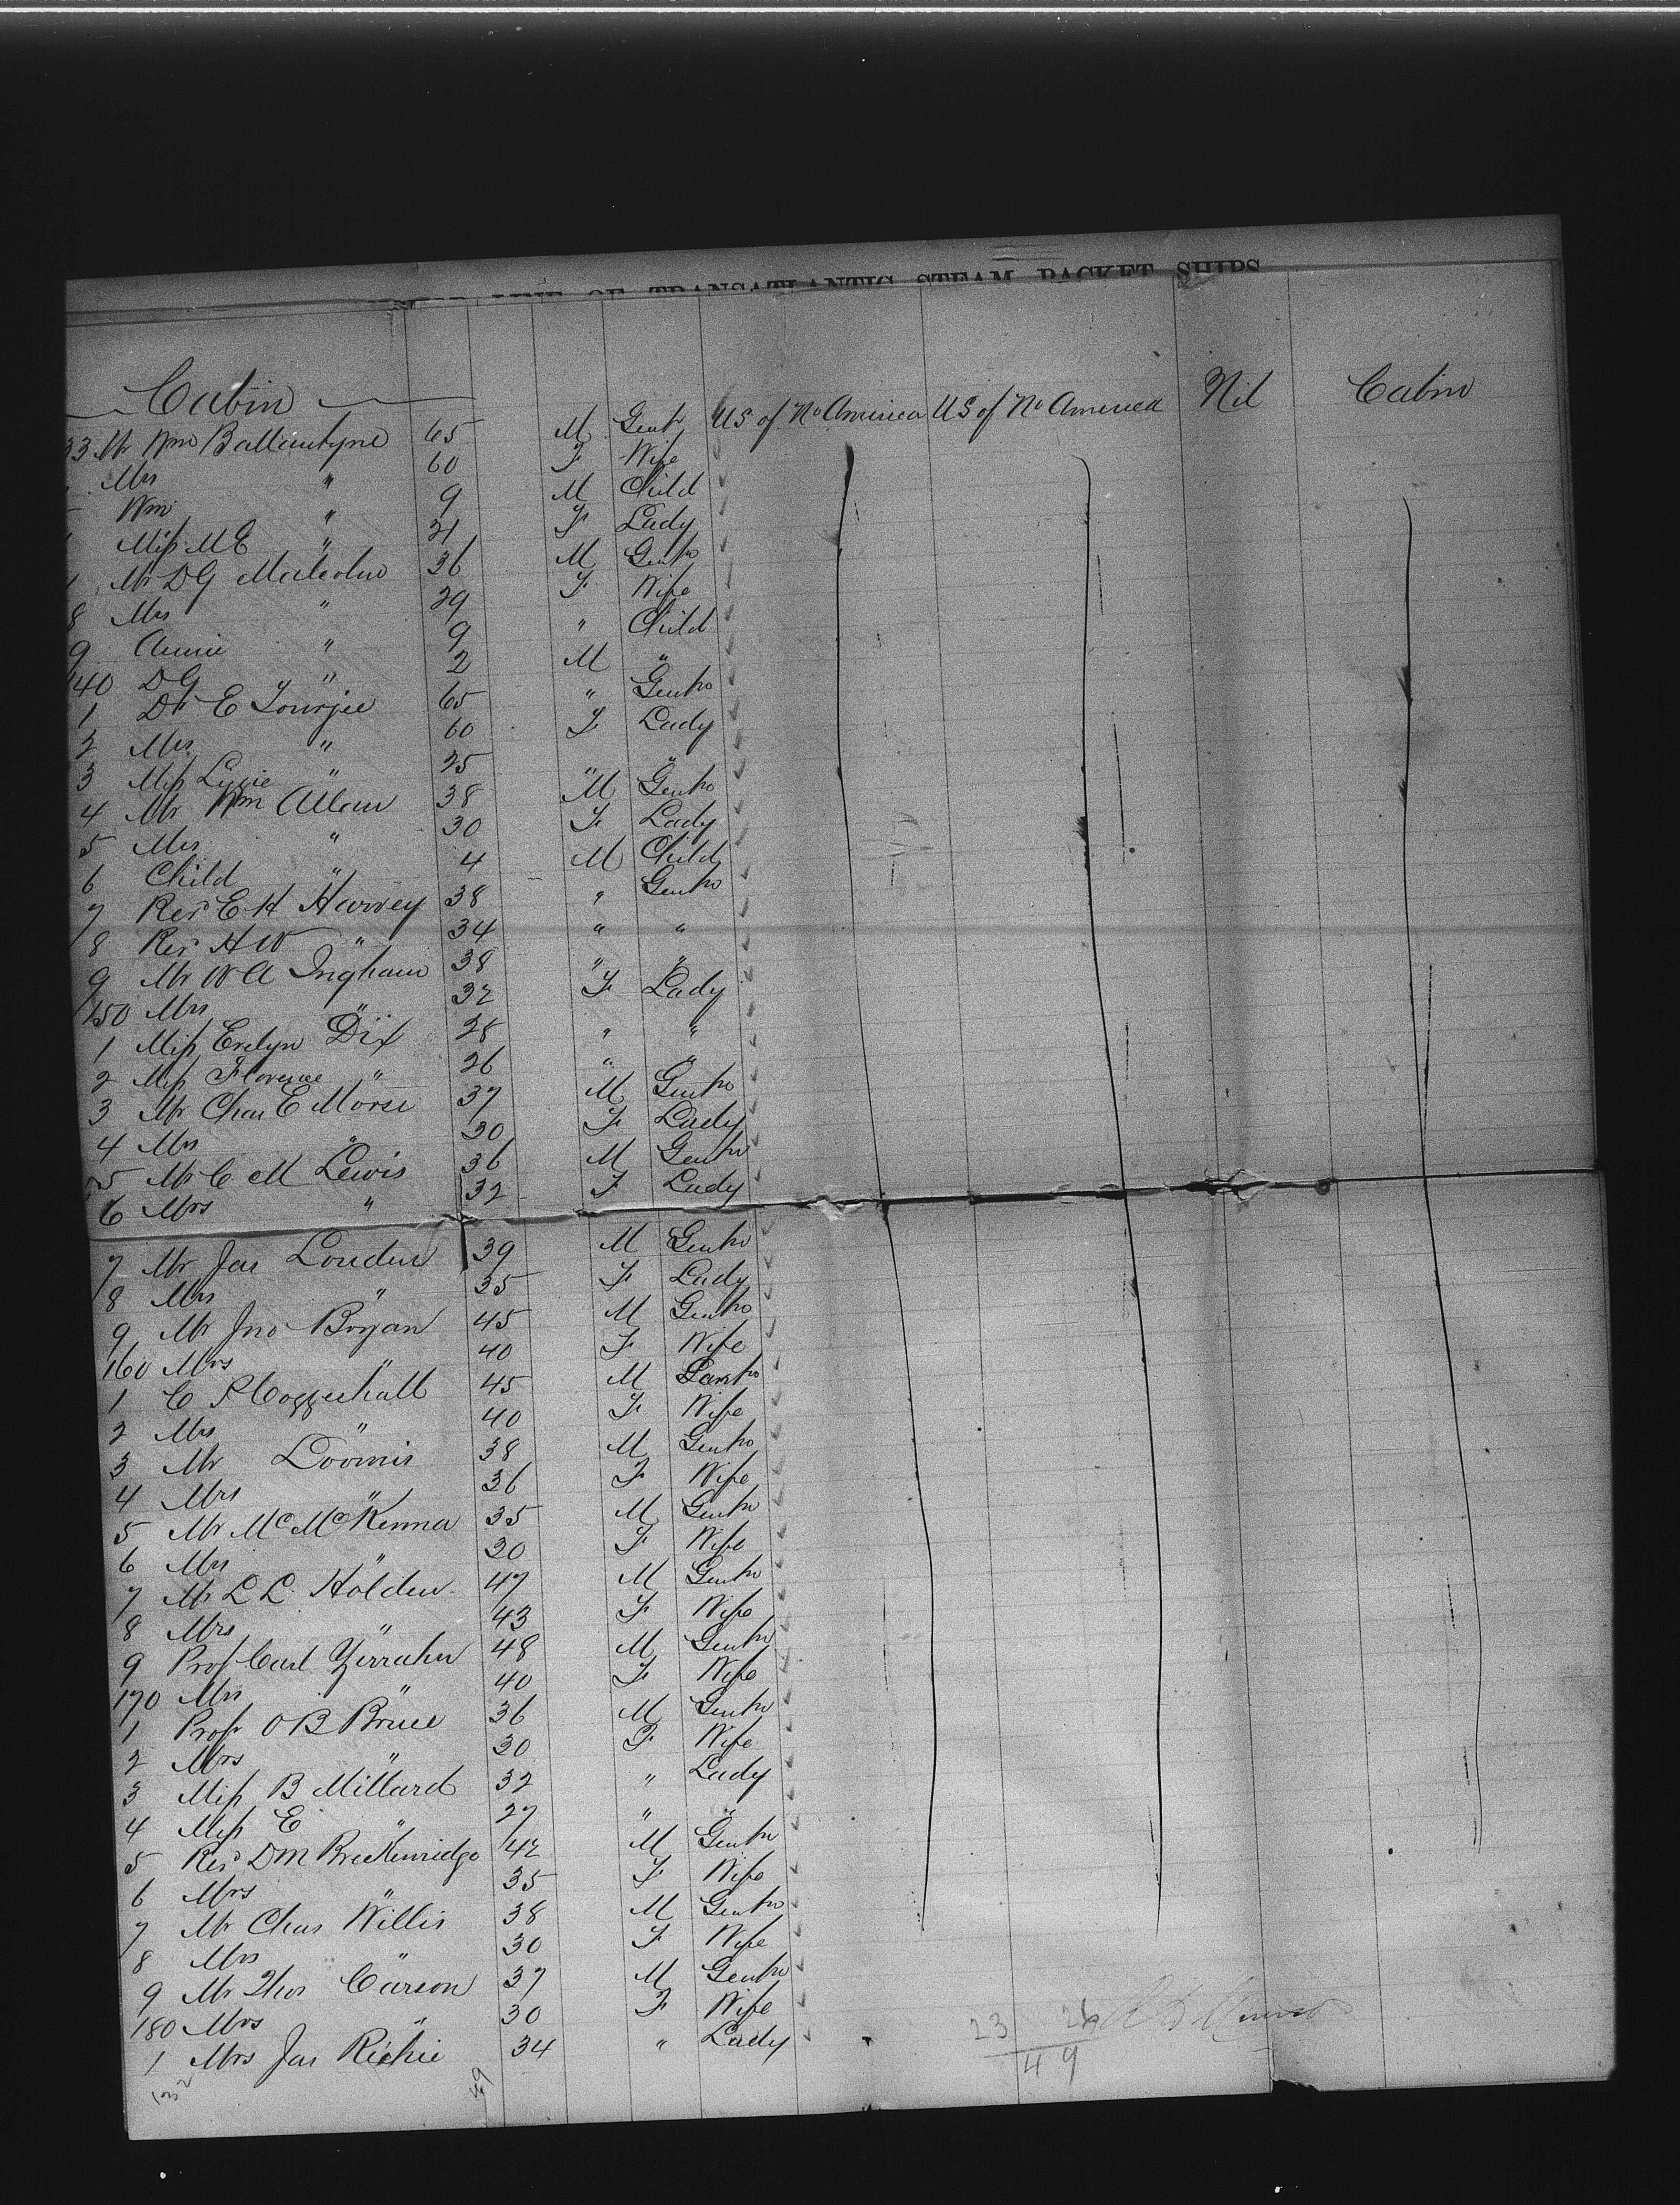 LINE OF TRANSATLANTIC STEAM PACKET SHIPS
Cabin
33 Mr Wm Ballantyne 65 M Gentn US of No America US of No America Nil Cabin
Mrs " 60 F Wife
Wm " 9 M Child
Miss M E " 21 F Lady
Mr D G Malcolm 36 M Gentn
8 Mrs " 29 F Wife
9 Annie " 9 " Child
140 D G " 2 M "
1 Dr E Tourjee 65 " Gentn
2 Mrs " 60 F Lady
3 Miss Lizzie " 25 " "
4 Mr Wm Allan 38 M Gentn
5 Mrs " 30 F Lady
6 Child " 4 M Child
7 Revd E H Harvey 38 " Gentn
8 Revd H W " 34 " "
9 Mr W A Ingham 38 " "
150 Mrs " 32 F Lady
1 Miss Evelyn Dix 28 " "
2 Miss Florence " 26 " "
3 Mr Chas E Morse 37 M Gentn
4 Mrs " 30 F Lady
5 Mr C M Lewis 36 M Gentn
6 Mrs " 32 F Lady
7 Mr Jas Louden 39 M Gentn
8 Mrs " 35 F Lady
9 Mr Jno Boyan 45 M Gentn
160 Mrs " 40 F Wife
1 C S Coggeshall 45 M Gentn
2 Mrs " 40 F Wife
3 Mr Loomis 38 M Gentn
4 Mrs " 36 F Wife
5 Mr Mc McKenna 35 M Gentn
6 Mrs " 30 F Wife
7 Mr L L Holden 47 M Gentn
8 Mrs " 43 F Wife
9 Prof Carl Zerrahn 48 M Gentn
170 Mrs " 40 F Wife
1 Profr O B Bruce 36 M Gentn
2 Mrs " 30 F Wife
3 Miss B Millard 32 " Lady
4 Miss E " 27 " "
5 Revd D M Breckenridge 42 M Gentn
6 Mrs " 35 F Wife
7 Mr Chas Willis 38 M Gentn
8 Mrs " 30 F Wife
9 Mr Thos Carson 37 M Gentn
180 Mrs " 30 F Wife
1 Mrs Jas Richie 34 " Lady
23 26
49
49